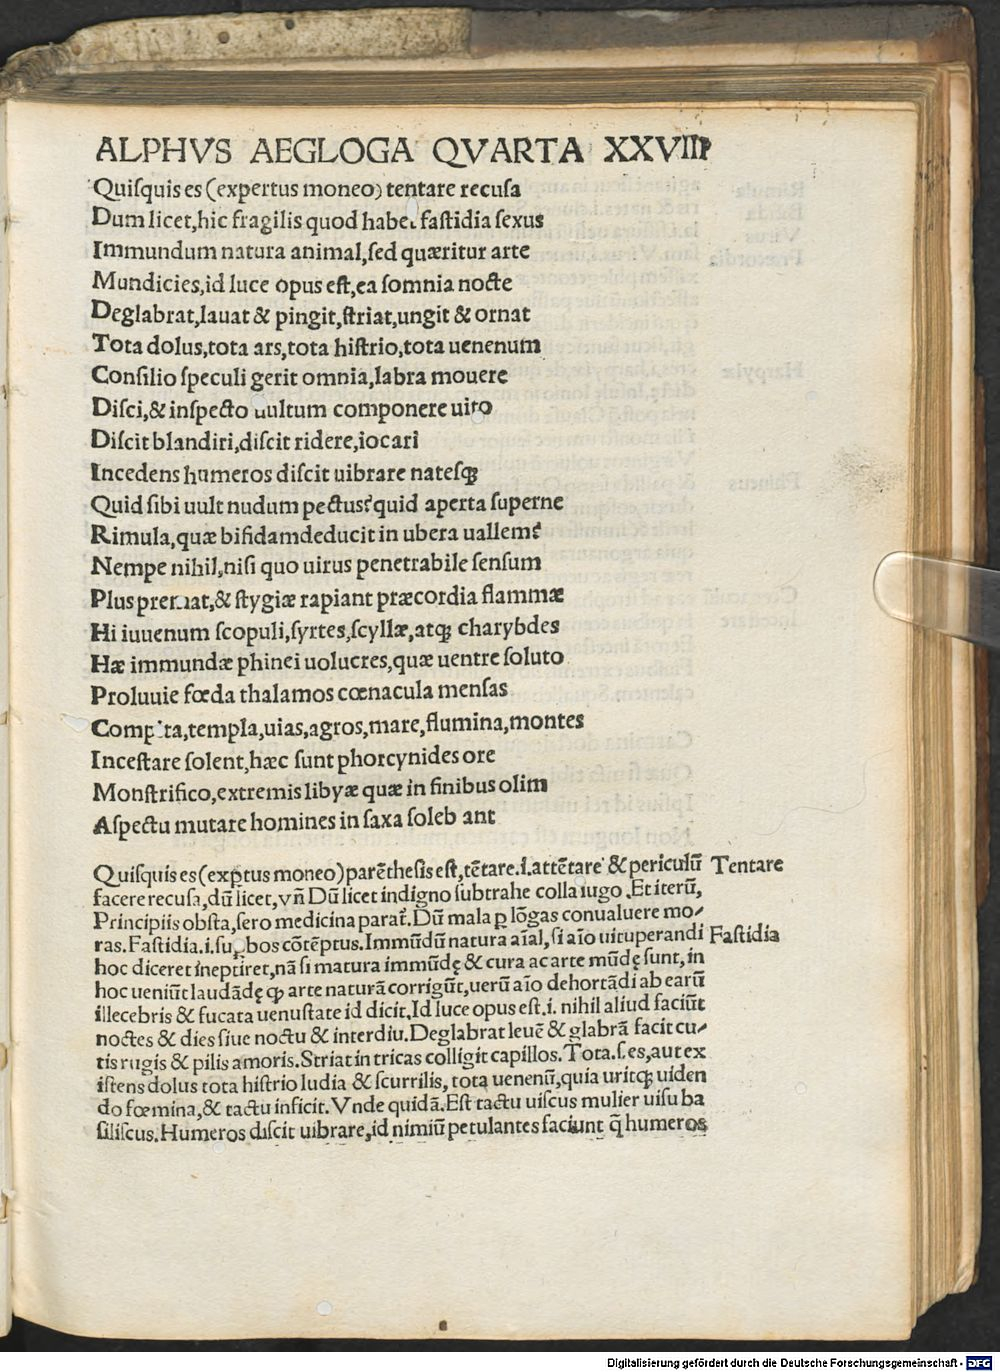 ALPHVS AEGLOGA QVARTA XXVIII
Quiſquis es (expertus moneo) tentare recuſa
Dum licet,hic fragilis quod habet faſtidia ſexus
Immundum natura animal,ſed quæritur arte
Mundicies,id luce opus eſt,ea ſomnia nocte
Deglabrat,lauat & pingit,ſtriat,ungit & ornat
Tota dolus,tota ars,tota hiſtrio,tota uenenum
Conſilio ſpeculi gerit omnia,labra mouere
Diſci,& inſpecto uultum componere uito
Diſcit blandiri,diſcit ridere,iocari
Incedens humeros diſcit uibrare nateſqꝫ
Quid ſibi uult nudum pectus?quid aperta ſuperne
Rimula,quæ bifidamdeducit in ubera uallem?
Nempe nihil,niſi quo uirus penetrabile ſenſum
Plus premat,& ſtygiæ rapiant præcordia flammæ
Hi iuuenum ſcopuli,ſyrtes,ſcyllæ,atqꝫ charybdes
Hæ immundæ phinei uolucres,quæ uentre ſoluto
Proluuie fœda thalamos cœnacula menſas
Compita,templa,uias,agros,mare,flumina,montes
Inceſtare ſolent,hæc ſunt phorcynides ore
Monſtrifico,extremis libyæ quæ in finibus olim
Aſpectu mutare homines in ſaxa ſoleb ant
Quiſquis es (exꝑtus moneo) parẽtheſis eſt,tẽtare.i.attẽtare & periculũ Tentare
facere recuſa,dũ licet,vñ Dũ licet indigno ſubtrahe colla iugo .Et iterũ,
Principiis obſta,ſero medicina parat̃. Dũ mala ꝑ lõgas conualuere mo/
ras. Faſtidia.i.ſuꝑbos cõtẽptus.Immũdũ natura aĩal,ſi aĩo uituperandi Faſtidia
hoc diceret ineptiret,nã ſi matura immũdę & cura ac arte mũdę ſunt,in
hoc ueniũt laudãdę ꝙ arte naturã corrigũt,uerũ aĩo dehortãdi ab earũ
illecebris & fucata uenuſtate id dicit.Id luce opus eſt.i. nihil aliud faciũt
noctes & dies ſiue noctu & interdiu.Deglabrat leuẽ & glabrã facit cu/
tis rugis & pilis amoris.Striat in tricas colligit capillos.Tota.ſ.es,aut ex
iſtens dolus tota hiſtrio ludia & ſcurrilis, tota uenenũ,quia uritqꝫ uiden
do fœmina,& tactu inficit. Vnde quidã.Eſt tactu uiſcus mulier uiſu ba
ſiliſcus.Humeros diſcit uibrare,id nimiũ petulantes faciunt q̃ humeros
Digitalisierung gefördert durch die Deutsche Forschungsgemeinschaft - DFG